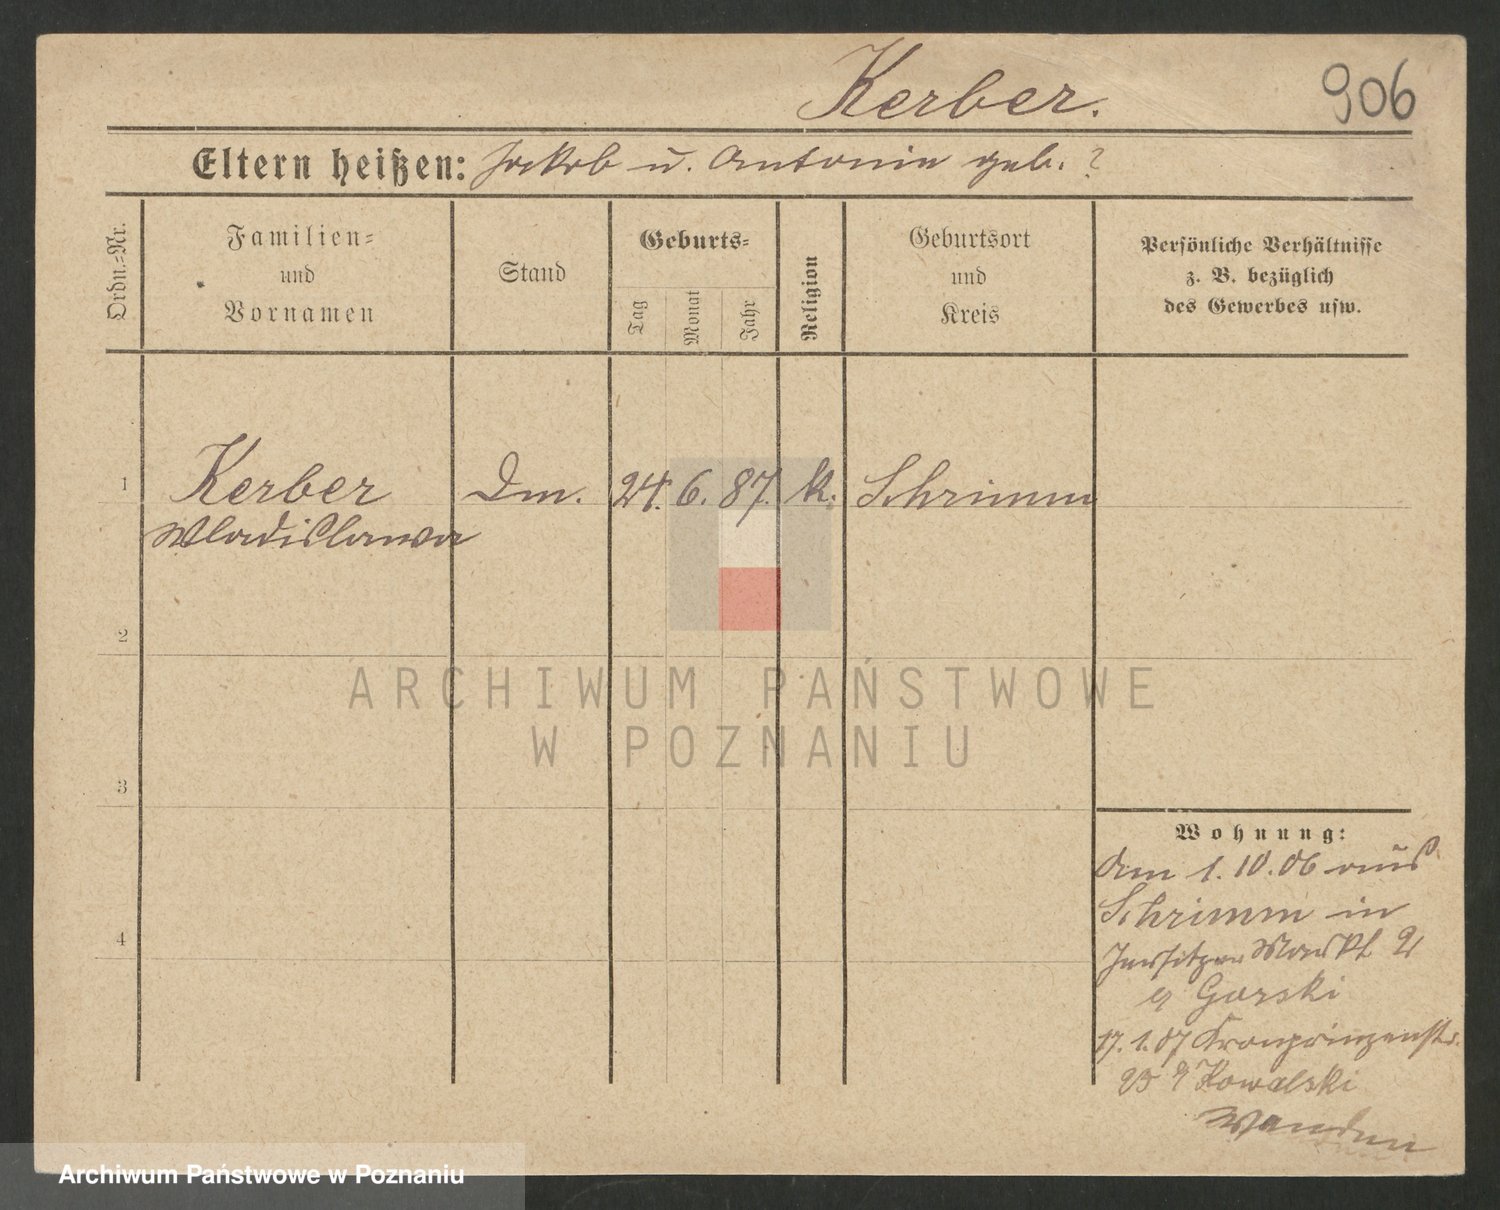 Kerber.
906
Eltern heißen: Jakob u. Antonie geb. ?
Ordn.-Nr.
Familien-
und
Vornamen
Stand
Geburts-
Tag
Monat
Jahr
Religion
Geburtsort
und
Kreis
Persönliche Verhältnisse
z. B. bezüglich
des Gewerbes usw.
1
Kerber
Wladislawa
Dm.
24.
6.
87.
k.
Schrimm
2
3
4
Wohnung:
Am 1.10.06 aus
Schrimm in
Jersitzer Markt 2
Gorski
17.1.07 Kronprinzenstr.
Kowalski
Wenden
ARCHIWUM PAŃSTWOWE
W POZNANIU
Archiwum Państwowe w Poznaniu